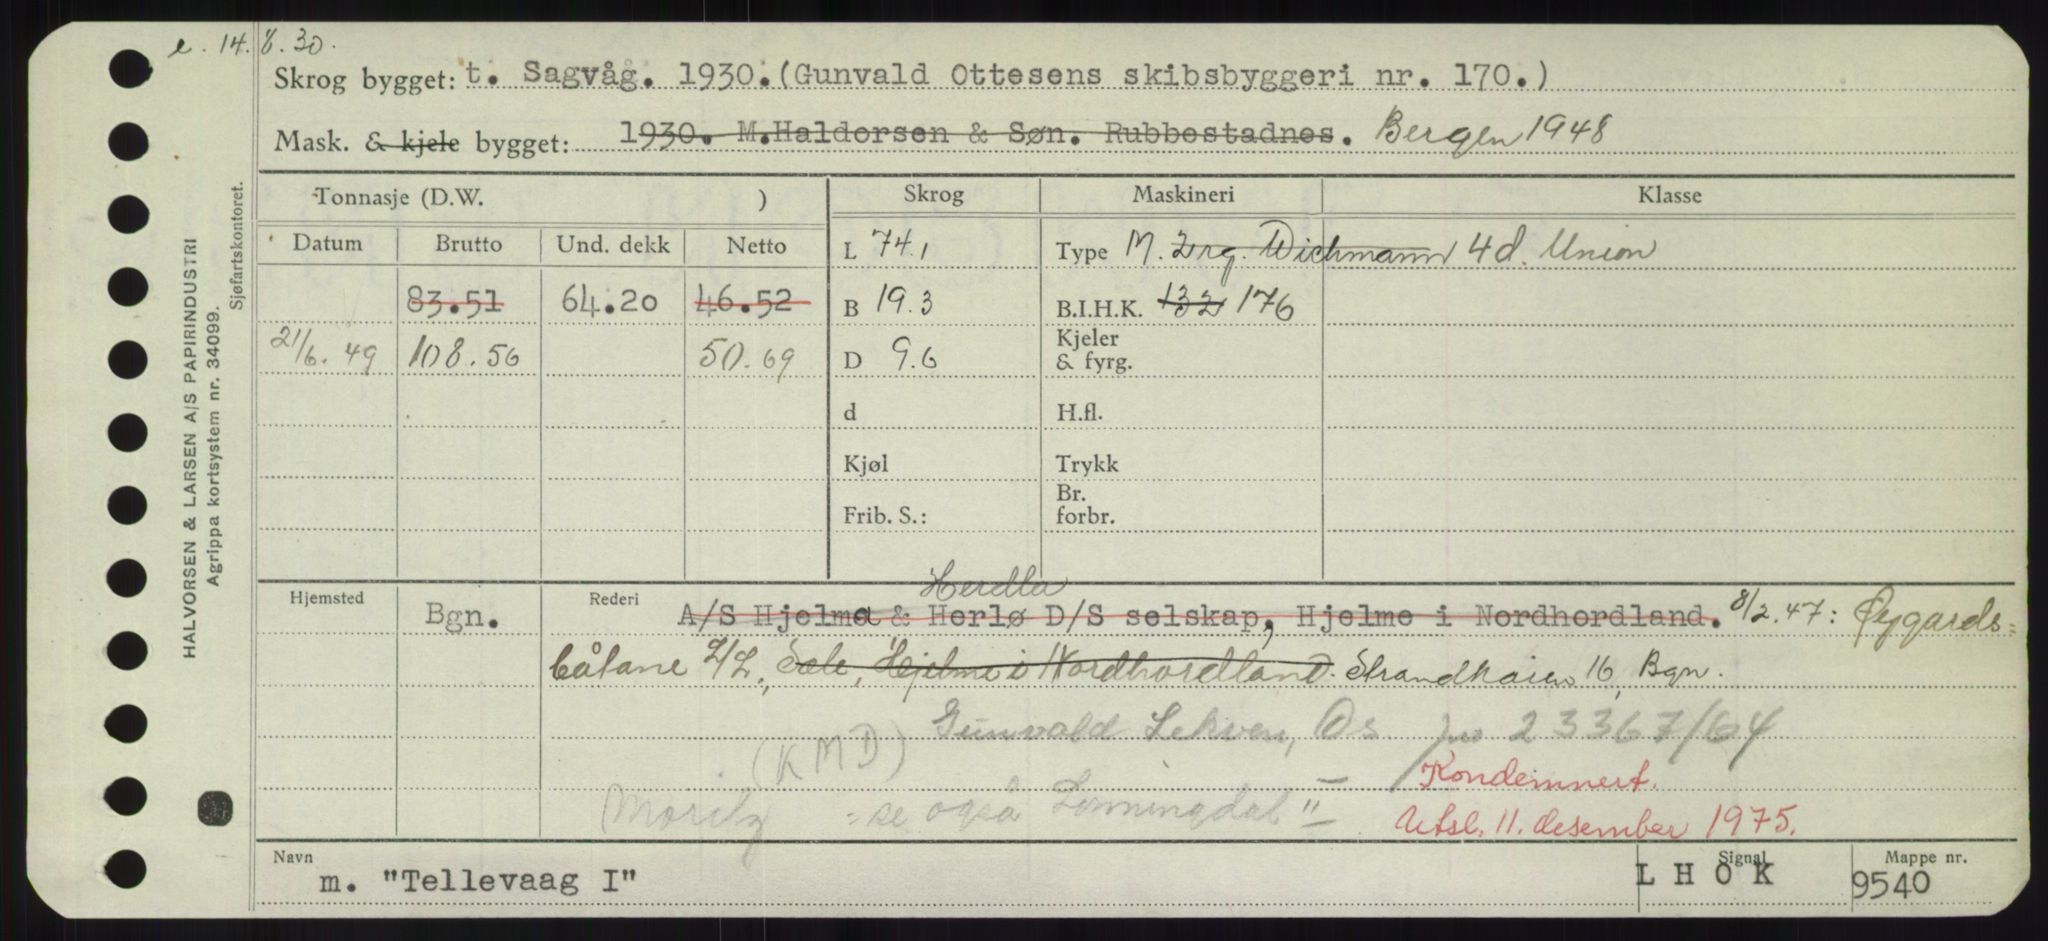 e. 14. 8. 30.
Skrog bygget: t. Sagvåg. 1930. (Gunvald Ottesens skibsbyggeri nr. 170.)
Mask. & kjele bygget: 1930. M.Haldorsen & Søn. Rubbestadnes. Bergen 1948
HALVORSEN & LARSEN A/S PAPIRINDUSTRI
Agrippa kortsystem nr. 34099.
Sjøfartskontoret.
Tonnasje (D.W. )
Skrog
Maskineri
Klasse
Datum Brutto Und. dekk Netto
L 74.1
Type M. Wichmann 4 d. Union
83.51 64.20 46.52
B 19.3
B.I.H.K. 132 176
21/6. 49 108.56 50.69
D 9.6
Kjeler
& fyrg.
d
H.fl.
Kjøl
Trykk
Frib. S.:
Br.
forbr.
Hjemsted Bgn.
Herdla
Rederi A/S Hjelma & Herlø D/S selskap, Hjelme i Nordhordland. 8/2.47: Øygards=
båtane L/L., Sæle, Hjelme i Nordhordland. Strandkaien 16, Bgn.
Gunvald Lekven, Os 23367/64
(KMD)
Kondemnert.
Moritz - se også Lønningdal II
Utsl. 11. desember 1975.
Navn m. "Tellevaag I"
Signal L H O K
Mappe nr. 9540